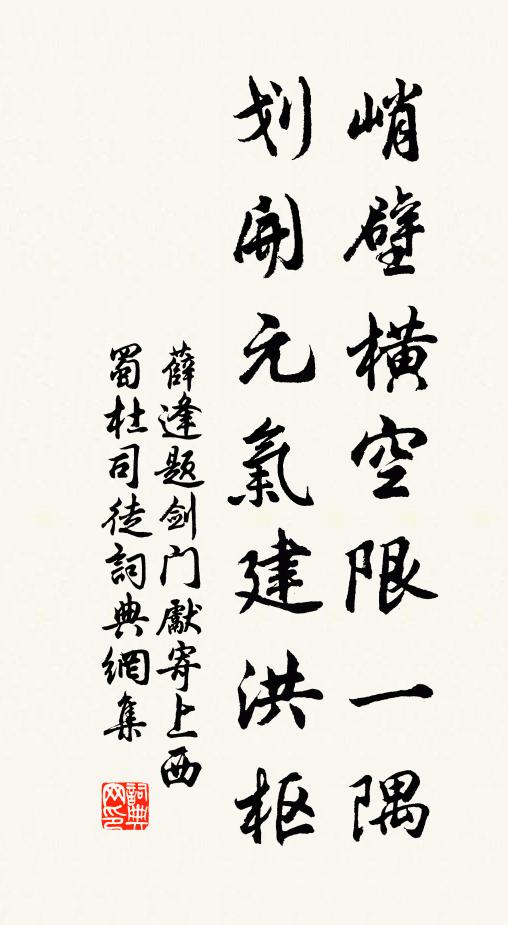 峭壁橫空限一隅
划開元氣建洪枢
薛逢题剑门獻寄上西
蜀杜司徒詞典網集
詞典
网印